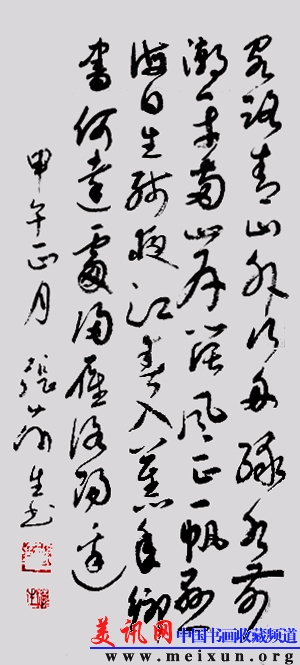 客路青山外行舟綠水前
潮平兩岸闊風正一帆懸
海日生殘夜江春入舊年鄉
書何達處歸雁洛陽邊
甲午正月 張生书
美讯网 中国书画收藏频道
www.meixun.org